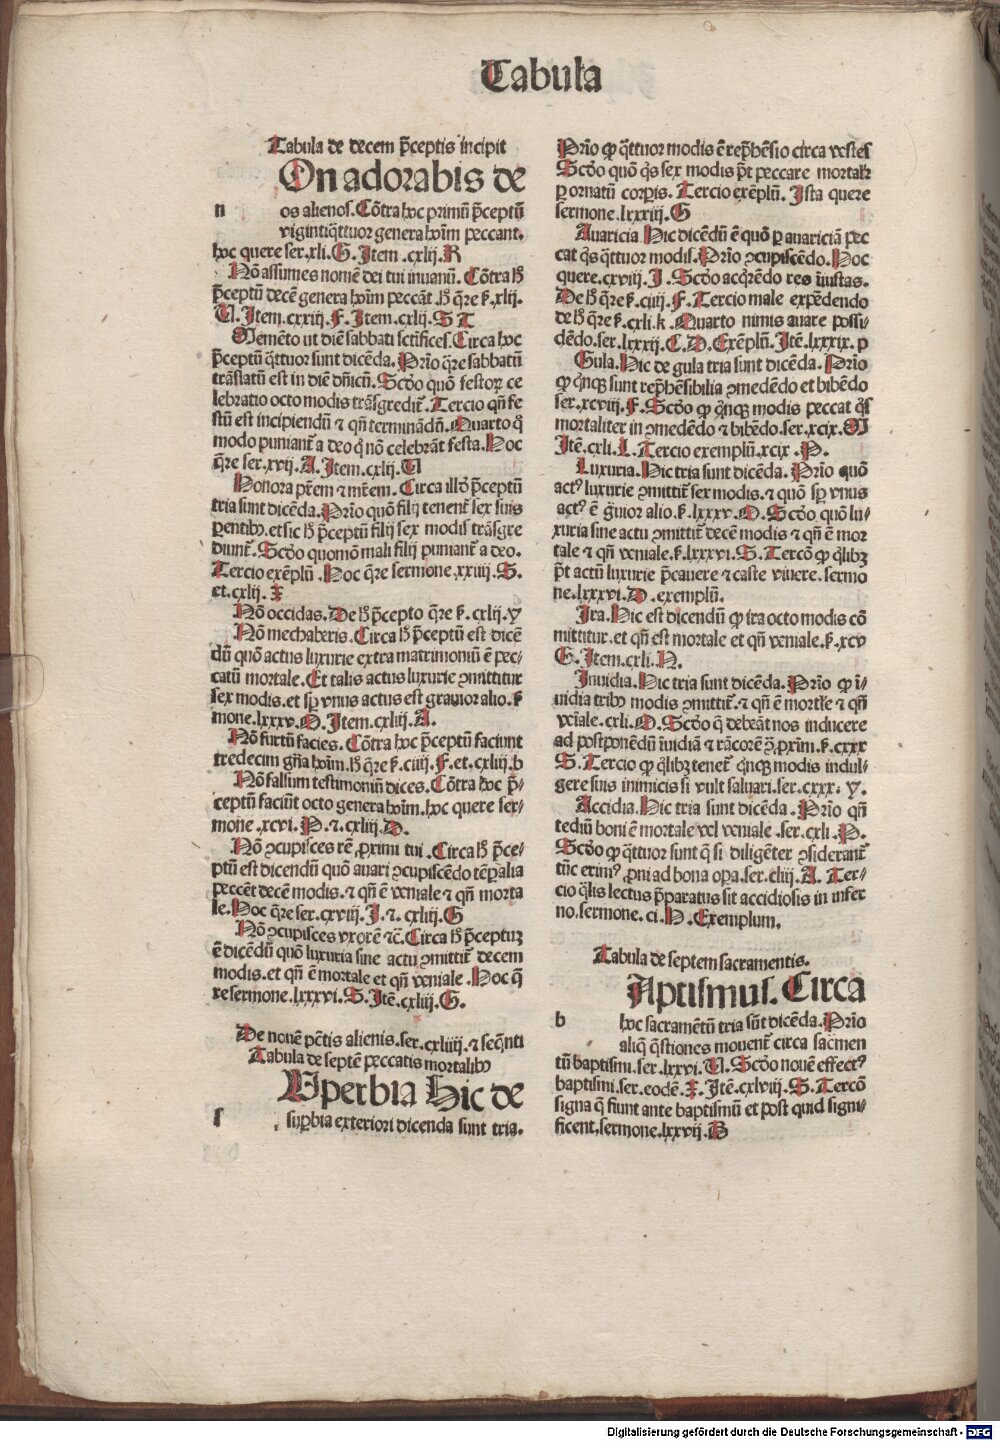 Tabula
Tabula de decem p̄ceptis incipit
On adorabis de
n os alienos. Cōtra hoc primū p̄ceptū
vigintiq̄ttuor genera hoīm peccant.
hoc quere ser. xli. G. Item .cxlij. R
Nō assumes nomē dei tui inuanū. Cōtra h̄
p̄ceptū decē genera hoīm peccāt .h̄ q̄re ẜ. xlij.
U. Item. cxxiij. F. Item. cxlij. S T
Memēto ut diē sabbati sctifices. Circa hoc
p̄ceptū q̄ttuor sunt dicēda. Prīo q̄re sabbatū
trāslatū est in diē dn̄icū. Scd̄o quō festoꝝ ce
lebratio octo modis trāsgredit᷑. Tercio qn̄ fe
stū est incipiendū ⁊ qn̄ terminādū. Quarto q̊
modo puniant᷑ a deo q̇ nō celebrāt festa. Hoc
q̄re ser. xvij. A. Item. cxlij. U
Honora pr̄em ⁊ mr̄em. Circa illḋ p̄ceptū
tria sunt dicēda. Prīo quō filij tenent᷑ sex suis
parentibꝰ. et sic h̄ p̄ceptū filij sex modis trāsgre
diunt᷑. Scd̄o quomō mali filij puniant᷑ a deo.
Tercio exēplū. Hoc q̄re sermone. xxiiij. S.
et. cxlij. X
Nō occidas. De h̄ p̄cepto q̄re ẜ. cxlij. y
Nō mechaberis. Circa h̄ p̄ceptū est dicē
dū quō actus luxurie extra matrimoniū ē pec⸗
catū mortale. Et talis actus luxurie ꝯmittitur
sex modis. et sꝑ vnus actus est grauior alio. ẜ
mone. lxxxv. O. Item. cxliij. A.
Nō furtū facies. Cōtra hoc p̄ceptū faciunt
tredecim gn̄a hoīm. h̄ q̄re ẜ. ciiij. F. et. cxliij. b
Nō falsum testimoniū dices. Cōtra hoc p̄⸗
ceptū faciūt octo genera hoīm. hoc quere ser⸗
mone. xcvi. P. ⁊. cxliij. D.
Nō ꝯcupisces rē ꝓximi tui. Circa h̄ p̄ce⸗
ptū est dicendū quō auari ꝯcupiscēdo tēꝑalia
peccēt decē modis. ⁊ qn̄ ē veniale ⁊ qn̄ morta
le. Hoc q̄re ser. cxviij. J. ⁊. cxliij. G
Nō ꝯcupisces vxorē ⁊c̄. Circa h̄ p̄ceptuꝫ
ē dicēdū quō luxuria sine actu ꝯmittit᷑ decem
modis. et qn̄ ē mortale et qn̄ veniale. Hoc q̄
re sermone. lxxxvi. S. Itē. cxliij. G.
De nouē pc̄tis alienis. ser. cxliiij. ⁊ seq̄nti
Tabula de septē peccatis mortalibꝰ
Uperbia Hic de
s suꝑbia exteriori dicenda sunt tria.
Prīo ꝙ q̄ttuor modis ē rep̄hēsio circa vestes
Scd̄o quō q̇s sex modis p̄t peccare mortalr̄
ꝑ ornatū corꝑis. Tercio exēplū. Ista quere
sermone. lxxxiij. G
Auaricia. Hic dicēdū ē quō ꝑ auariciā pec
cat q̇s q̄ttuor modis. Prīo ꝯcupiscēdo. Hoc
quere. cxviij. J. Scd̄o acq̇rēdo res iniustas.
De h̄ q̄re ẜ. ciiij. F. Tercio male expēdendo
de h̄ q̄re ẜ. cxli. k. Quarto nimis auare possi⸗
dēdo. ser. lxxxij. C. D. Exēplū. Itē. lxxxix. p
Gula. Hic de gula tria sunt dicēda. Prīo
ꝙ q̇nqꝫ sunt rep̄hēsibilia ꝯmedēdo et bibēdo
ser. xcviij. F. Scd̄o ꝙ q̇nqꝫ modis peccat q̇s
mortaliter in ꝯmedēdo ⁊ bibēdo. ser. xcix. M
Itē. cxli. L. Tercio exemplū. xcix. P.
Luxuria. Hic tria sunt dicēda. Prīo quō
actꝰ luxurie ꝯmittit᷑ sex modis. ⁊ quō sꝑ vnus
actꝰ ē grauior alio. ẜ. lxxxv. O. Scd̄o quō lu⸗
xuria sine actu ꝯmittit᷑ decē modis ⁊ qn̄ ē mor
tale ⁊ qn̄ veniale. ẜ. lxxxvi. S. Tercō ꝙ q̇libꝫ
p̄t actū luxurie p̄cauere ⁊ caste viuere. sermo
ne. lxxxvi. D. exemplū.
Ira. Hic est dicendū ꝙ ira octo modis cō
mittitur. et qn̄ est mortale et qn̄ veniale. ẜ. xcv
G. Item. cxli. N.
Inuidia. Hic tria sunt dicēda. Prīo ꝙ ī⸗
uidia tribꝰ modis ꝯmittit᷑. ⁊ qn̄ ē mortale ⁊ qn̄
vēiale. cxli. O. Scd̄o q̄ debeāt nos inducere
ad postponēdū inuidiā ⁊ rācorē ꝯ̄ ꝓxim̄. ẜ. cxxx
S. Tercio ꝙ q̇libꝫ tenet᷑ q̇nqꝫ modis indul⸗
gere suis inimicis si vult saluari. ser. cxxx. y.
Accidia. Hic tria sunt dicēda. Prīo qn̄
tediū boni ē mortale vel veniale. ser. cxli. P.
Scd̄o ꝙ q̄ttuor sunt q̄ si diligēter ꝯsiderant᷑
tūc erimꝰ ꝓni ad bona oꝑa. ser. cliij. A. Ter⸗
cio q̇lis lectus p̄paratus sit accidiosis in infer
no. sermone. ci. N. Exemplum.
Tabula de septem sacramentis.
Aptismus. Circa
b hoc sacramētū tria sūt dicēda. Prīo
aliq̄ q̄stiones mouent᷑ circa sacr̄amen
tū baptismi. ser. lxxvi. U. Scd̄o nouē effectꝰ
baptismi. ser. eodē. X. Itē. cxlviij. S. Tercō
signa q̄ fiunt ante baptismū et post quid signi⸗
ficent. sermone. lxxvij. B
Digitalisierung gefördert durch die Deutsche Forschungsgemeinschaft - DFG